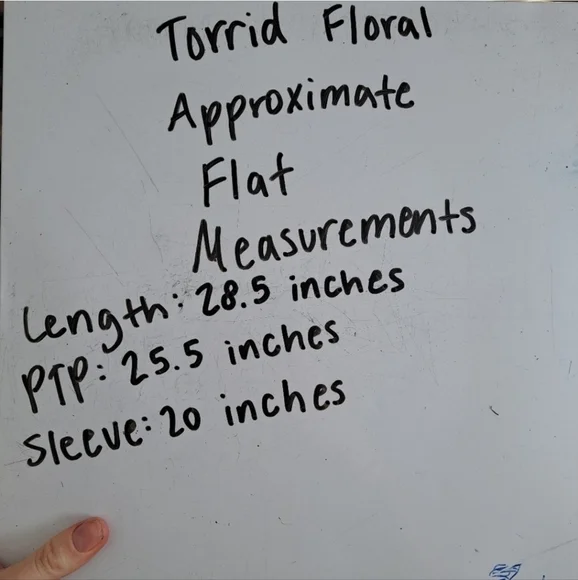 Torrid Floral
Approximate
Flat
Measurements
Length: 28.5 inches
PTP: 25.5 inches
Sleeve: 20 inches